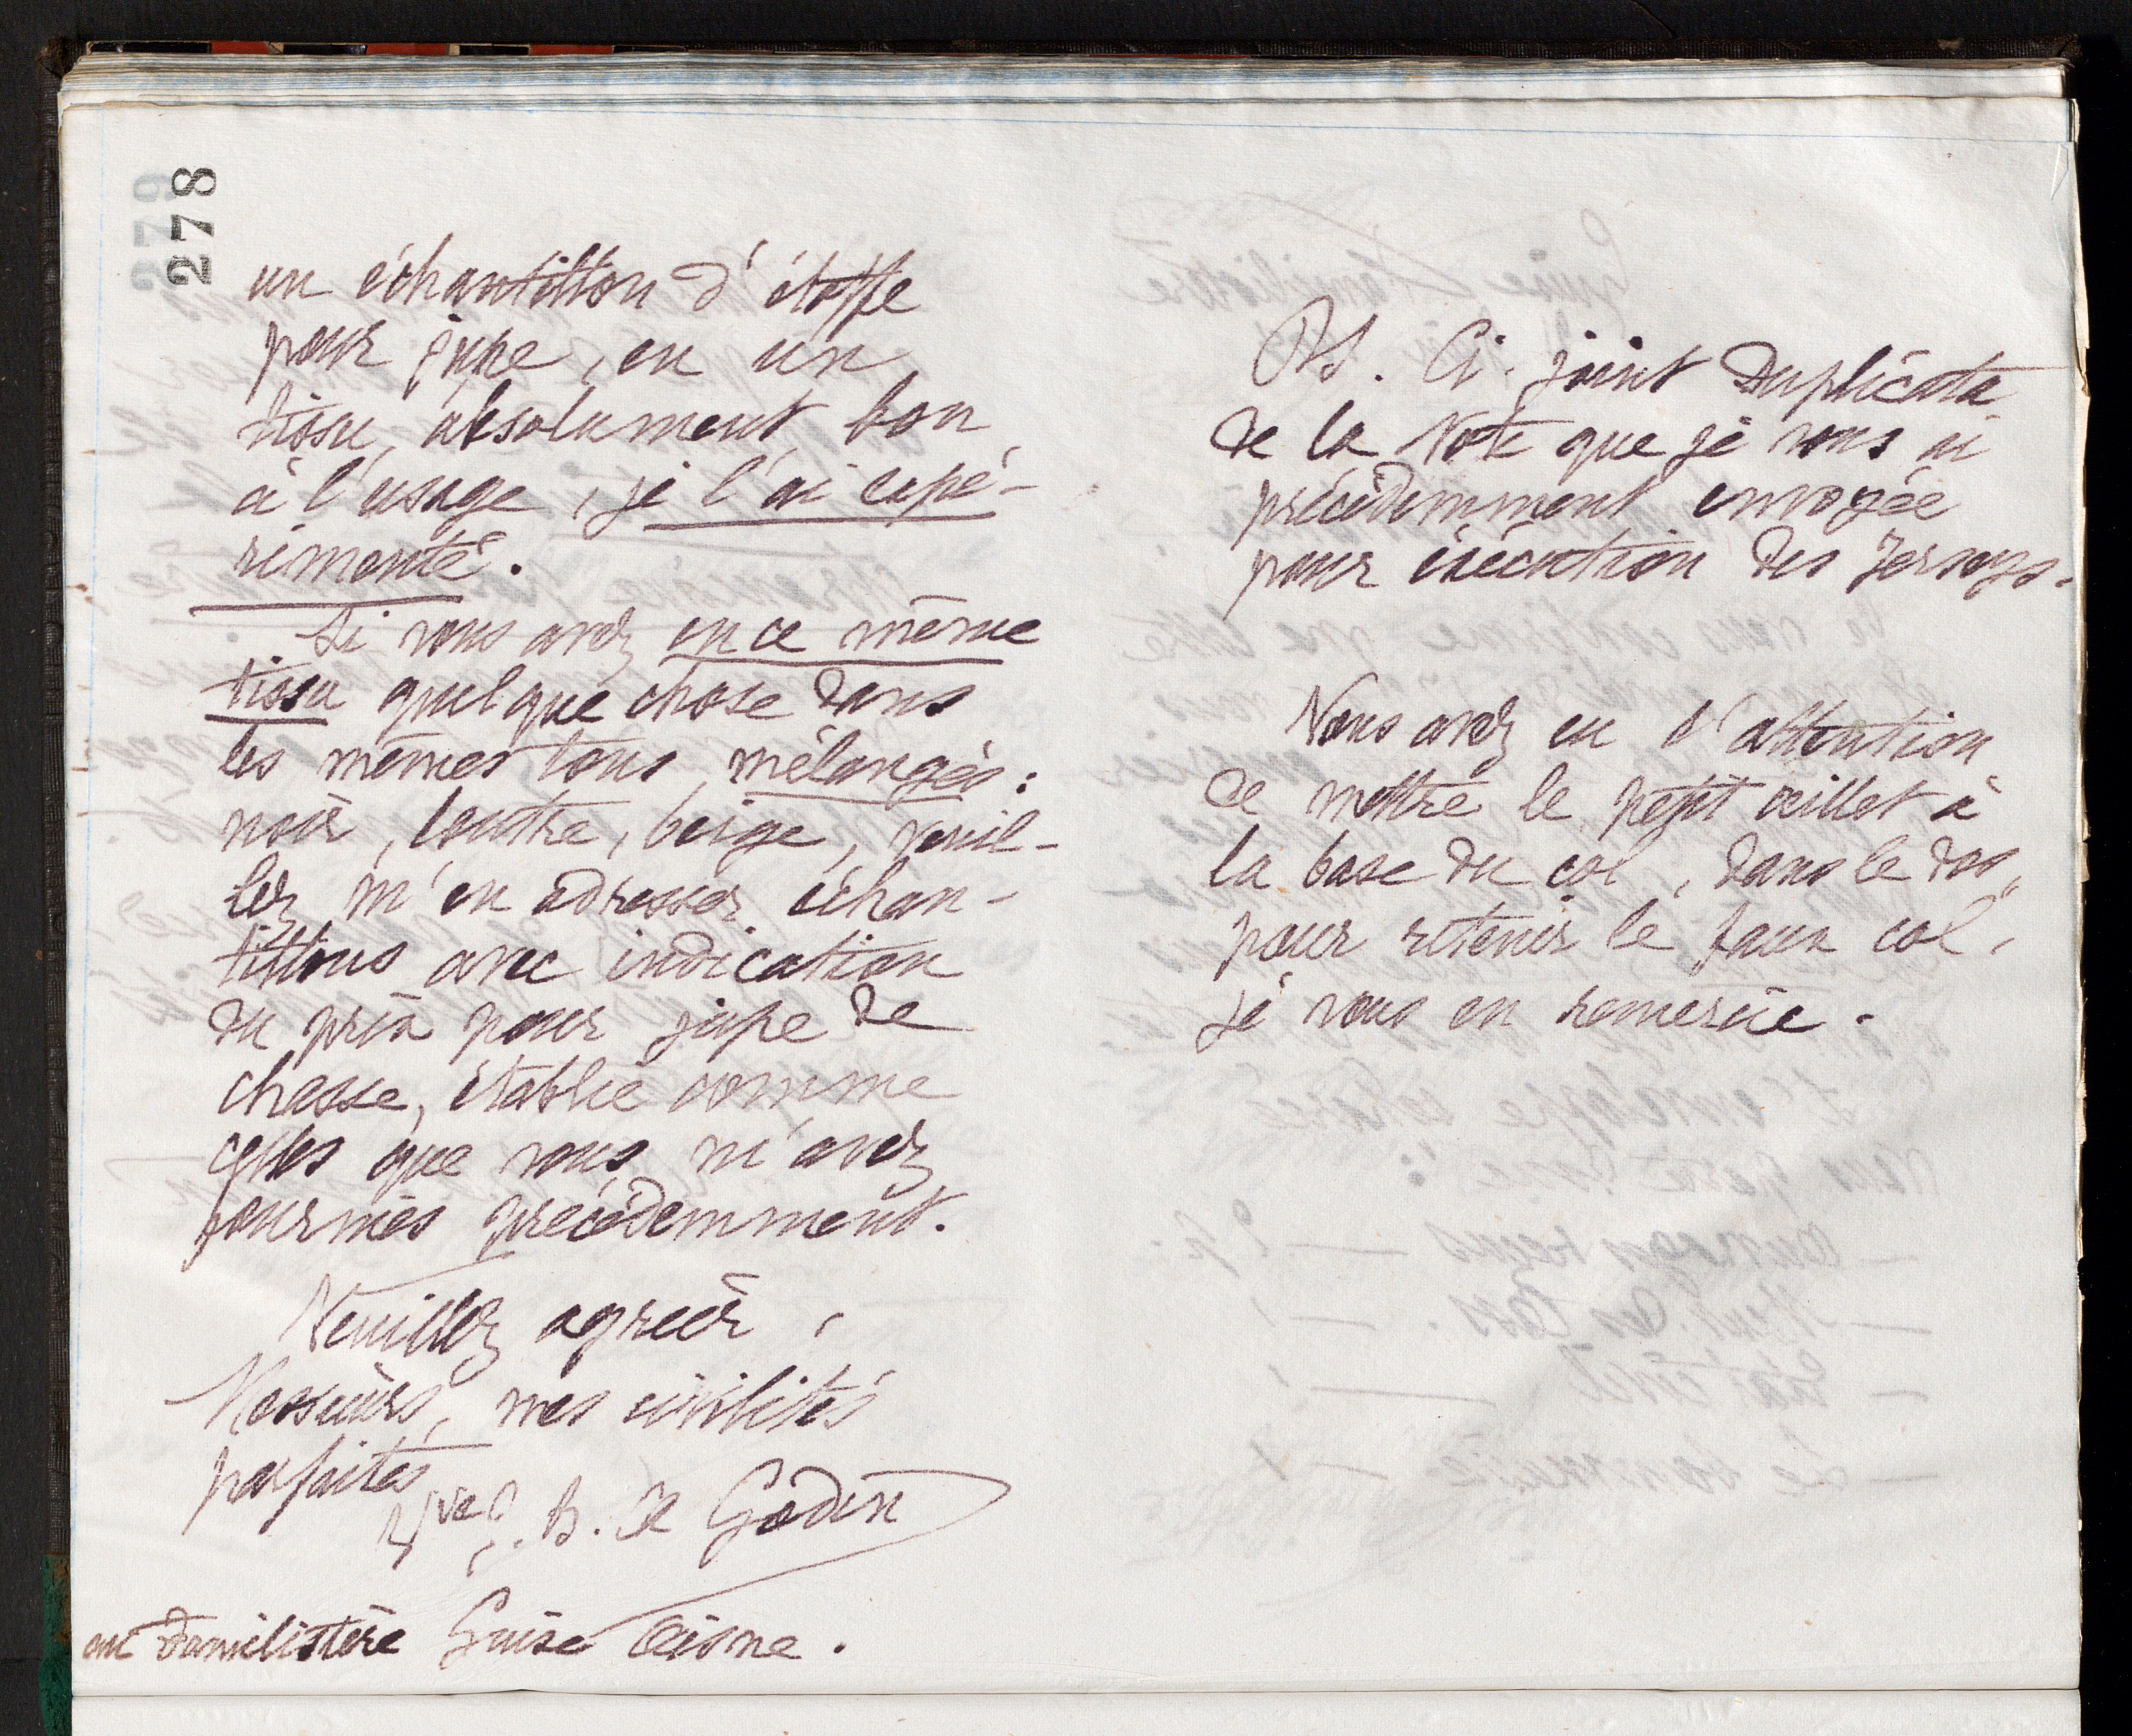 278
un échantillon d'étoffe
pour jupe, en un
tissu, absolument bon
à l'usage, je l'ai expé-
rimenté.
Si vous avez en ce même
tissu quelque chose dans
les mêmes tons mélangés :
noir, loutre, beige, veuil-
lez m'en adresser échan-
tillons avec indication
du prix pour jupe de
chasse, établie comme
celles que vous m'avez
fournies précédemment.
Veuillez agréer,
Messieurs, mes civilités
parfaites
Vve J. B. A. Godin
au Familistère Guise Aisne.
PS. Ci-joint duplicata
de la Note que je vous ai
précédemment envoyée
pour exécution des Jerseys.
Vous avez eu l'attention
de mettre le petit œillet à
la base du col, dans le dos,
pour retenir le faux col,
je vous en remercie.